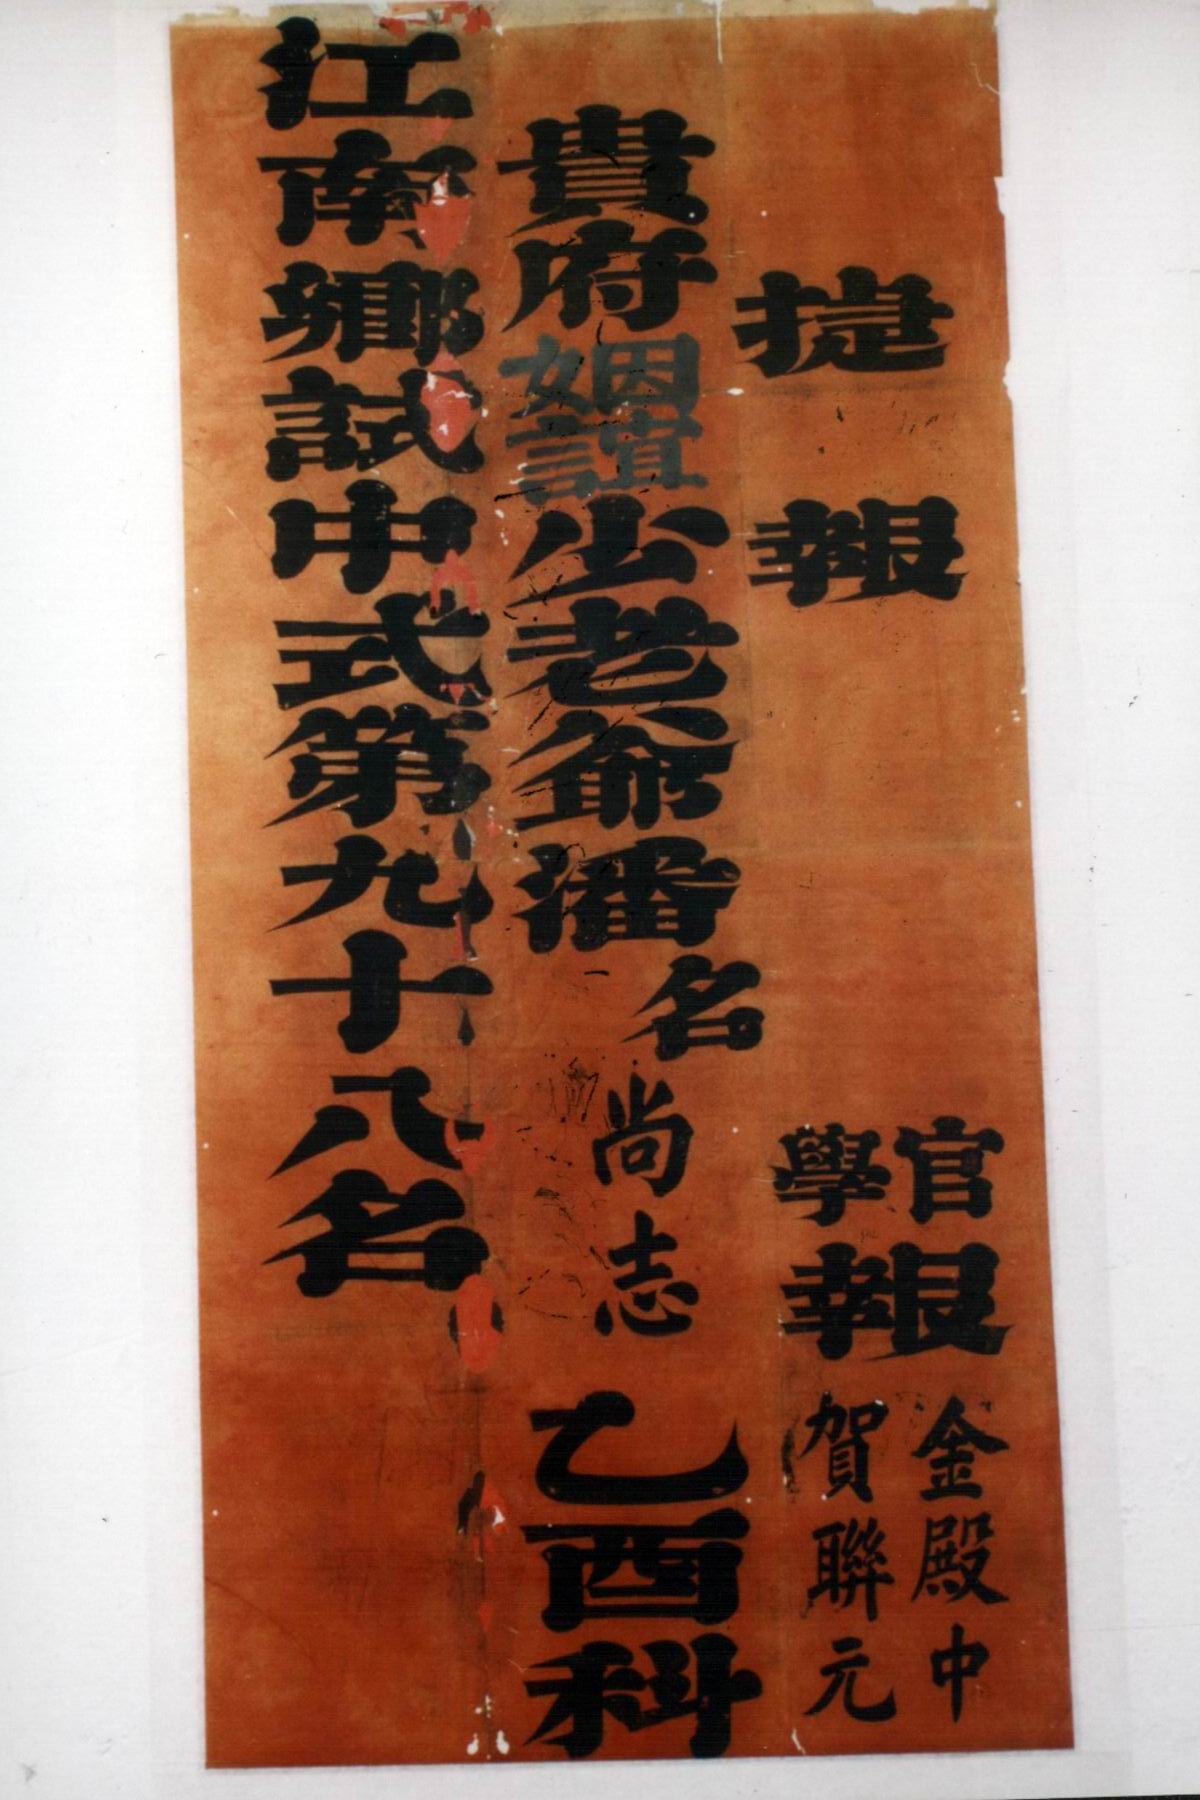 捷報
貴府姻誼少老爺潘名尚志乙酉科
江南鄉試中式第九十八名
官報金殿中
學報賀聯元